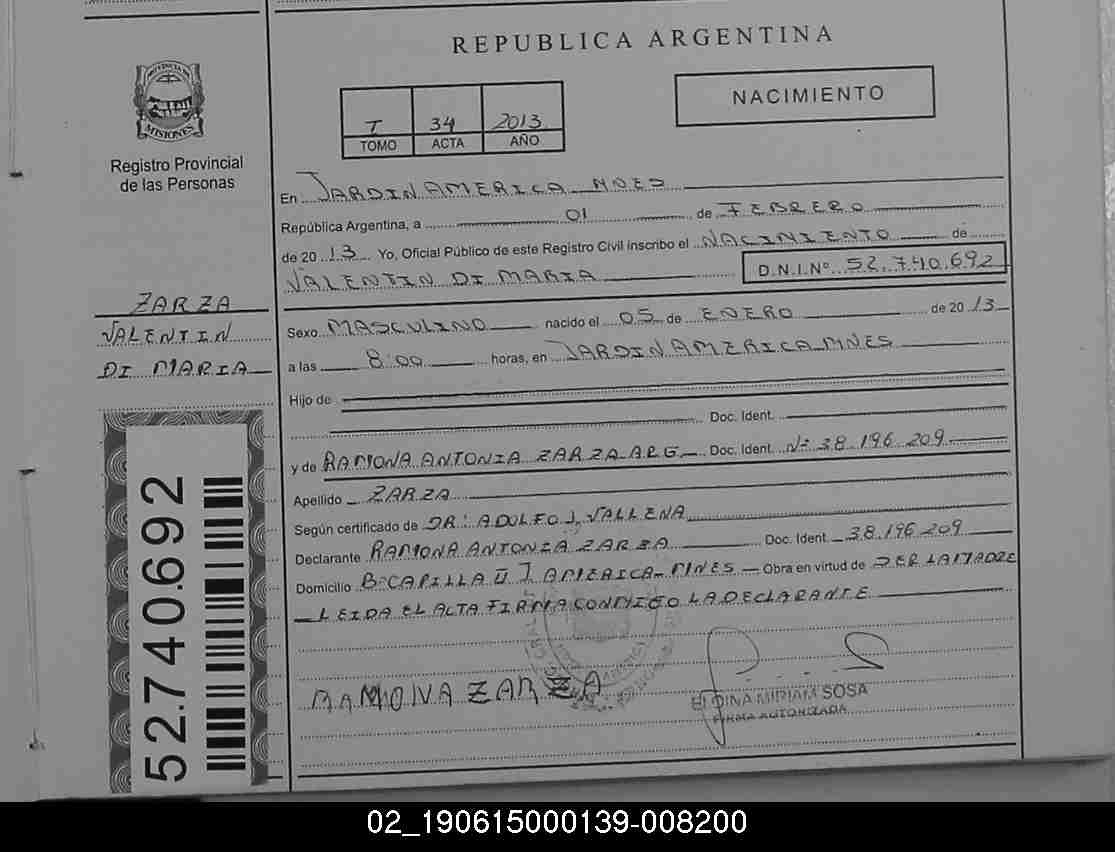 REPUBLICA ARGENTINA
PROVINCIA DE
MISIONES
Registro Provincial
de las Personas
T 34 2013
TOMO ACTA AÑO
NACIMIENTO
En JARDIN AMERICA MNES
República Argentina, a 01 de FEBRERO
de 2013 Yo, Oficial Público de este Registro Civil inscribo el NACIMIENTO de
VALENTIN DI MARIA D.N.I.Nº 52.740.692
ZARZA
VALENTIN
DI MARIA
Sexo MASCULINO nacido el 05 de ENERO de 2013
a las 8:00 horas, en JARDIN AMERICA MNES
Hijo de
Doc. Ident.
y de RAMONA ANTONIA ZARZA-ARG Doc. Ident. Nº 38.196.209
Apellido ZARZA
Según certificado de DR: ADOLFO J. VALLENA
Declarante RAMONA ANTONIA ZARZA Doc. Ident. 38.196.209
Domicilio Bº CAPILLA J. AMERICA-MNES Obra en virtud de SER LA MADRE
LEIDA EL ALTA FIRMA CONMIGO LA DECLARANTE
RAMONA ZARZA
MIRIAM SOSA
FIRMA AUTORIZADA
52740692
02_190615000139-008200